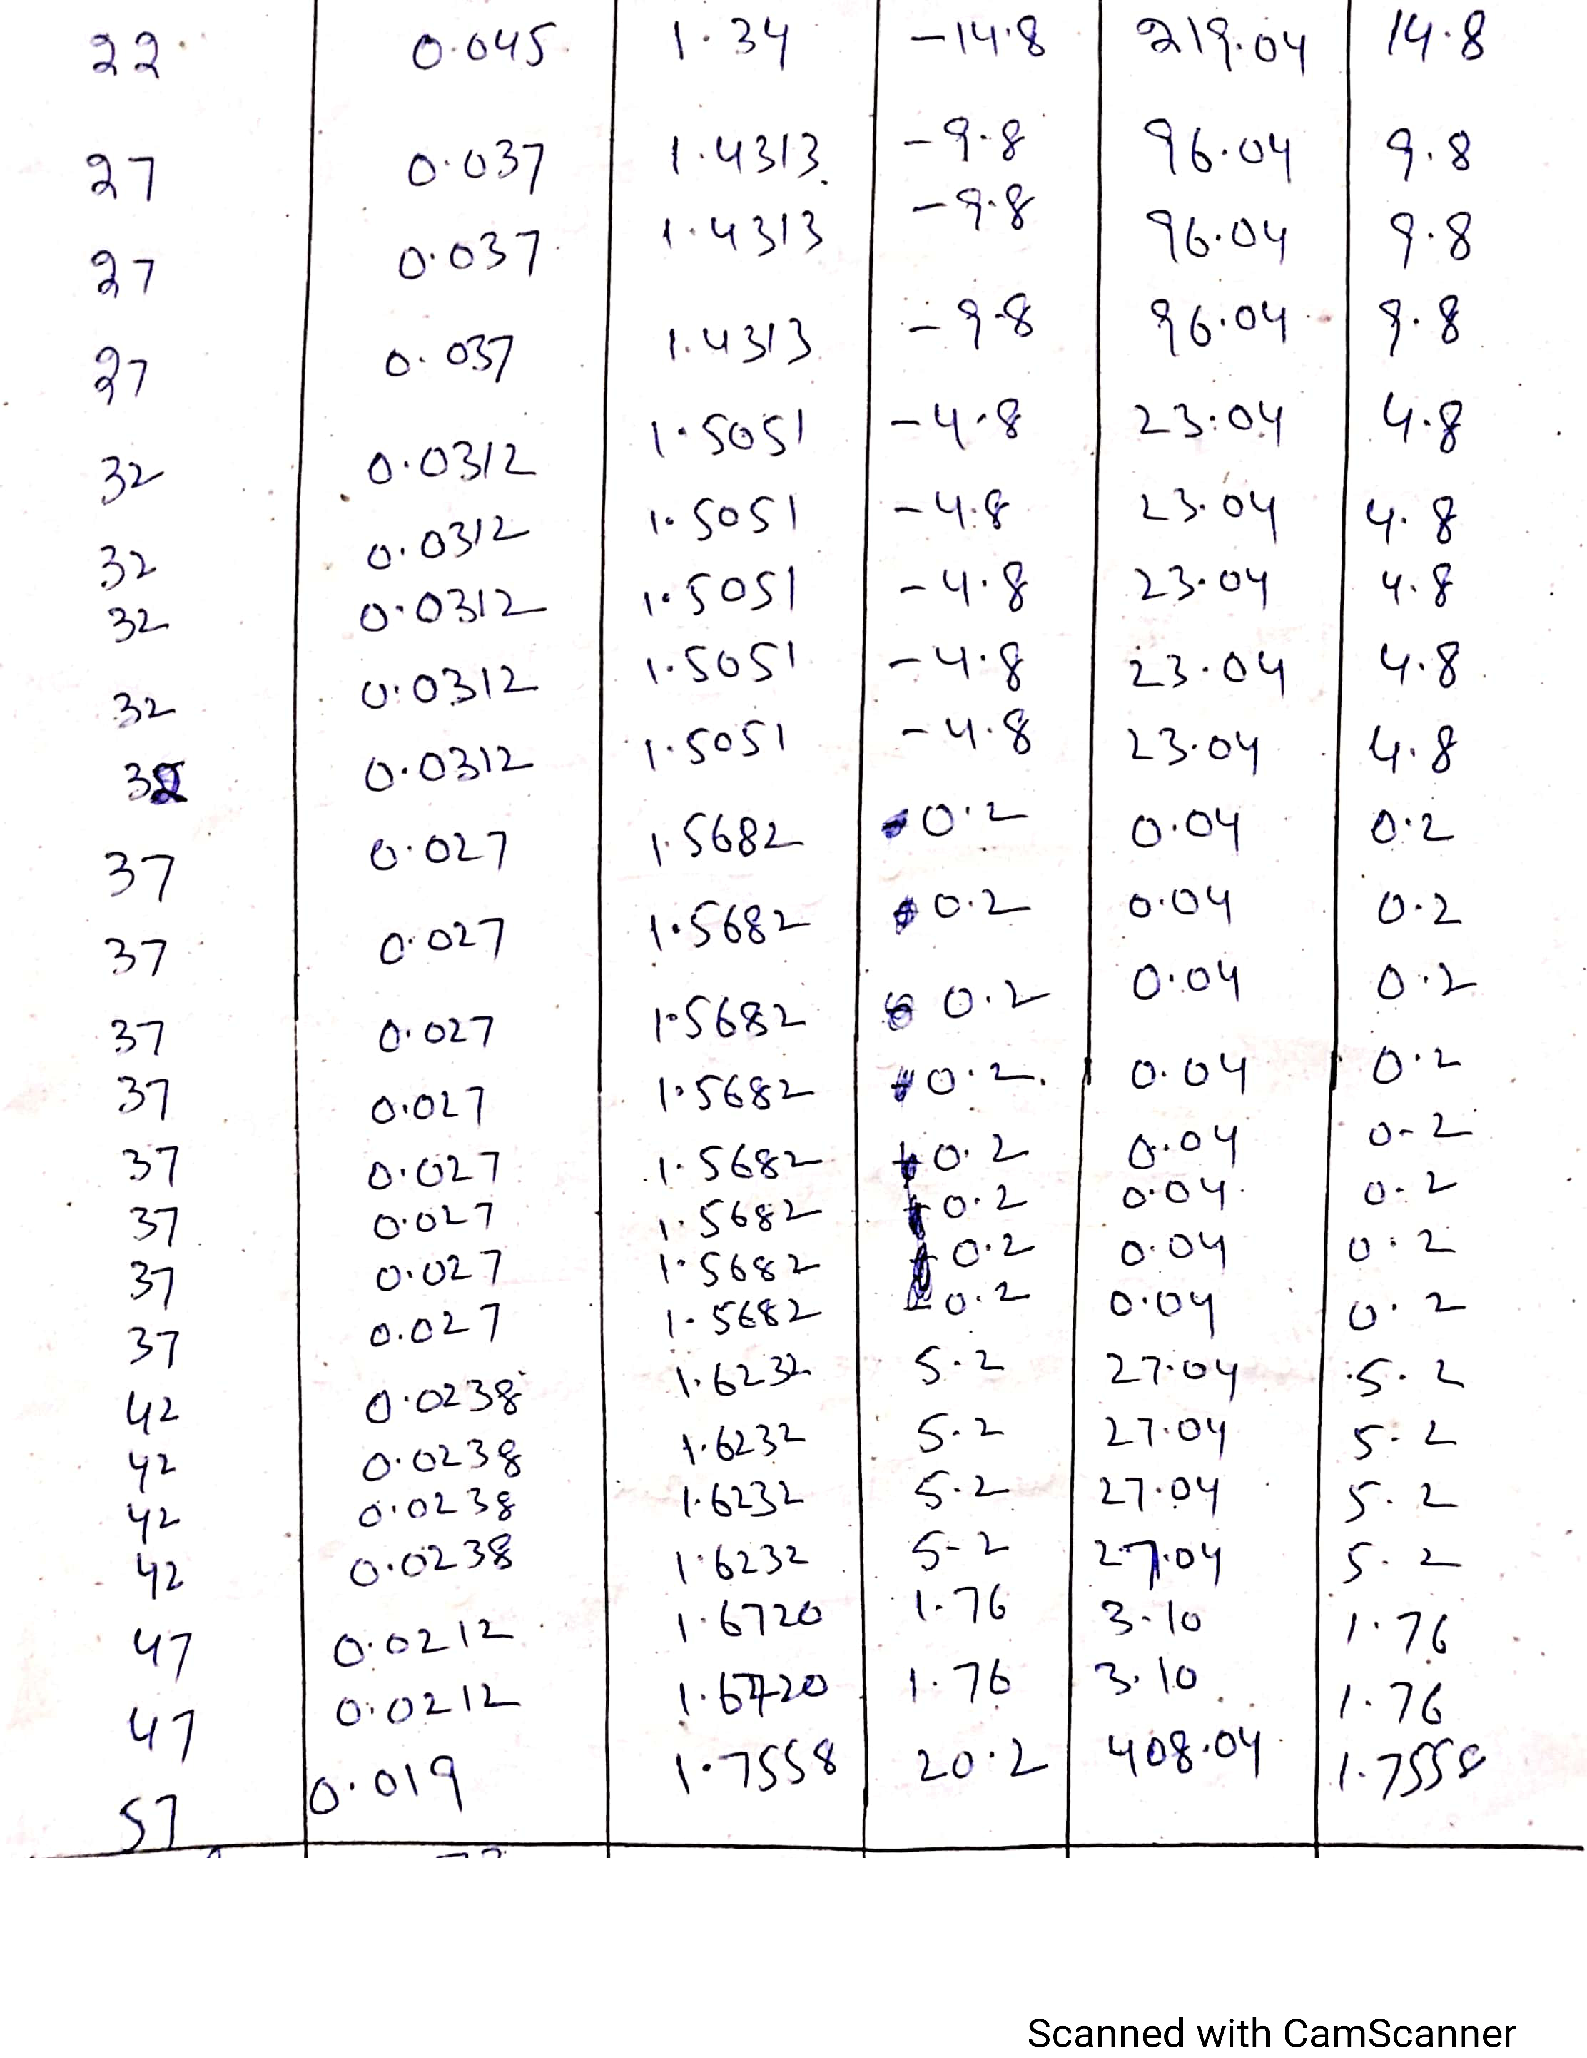 22 0.045 1.34 -14.8 219.04 14.8
27 0.037 1.4313 -9.8 96.04 9.8
27 0.037 1.4313 -9.8 96.04 9.8
27 0.037 1.4313 -9.8 96.04 9.8
32 0.0312 1.5051 -4.8 23.04 4.8
32 0.0312 1.5051 -4.8 23.04 4.8
32 0.0312 1.5051 -4.8 23.04 4.8
32 0.0312 1.5051 -4.8 23.04 4.8
32 0.0312 1.5051 -4.8 23.04 4.8
37 0.027 1.5682 0.2 0.04 0.2
37 0.027 1.5682 0.2 0.04 0.2
37 0.027 1.5682 0.2 0.04 0.2
37 0.027 1.5682 0.2 0.04 0.2
37 0.027 1.5682 0.2 0.04 0.2
37 0.027 1.5682 0.2 0.04 0.2
37 0.027 1.5682 0.2 0.04 0.2
37 0.027 1.5682 0.2 0.04 0.2
42 0.0238 1.6232 5.2 27.04 5.2
42 0.0238 1.6232 5.2 27.04 5.2
42 0.0238 1.6232 5.2 27.04 5.2
42 0.0238 1.6232 5.2 27.04 5.2
47 0.0212 1.6720 1.76 3.10 1.76
47 0.0212 1.6720 1.76 3.10 1.76
57 0.019 1.7558 20.2 408.04 1.7558
Scanned with CamScanner